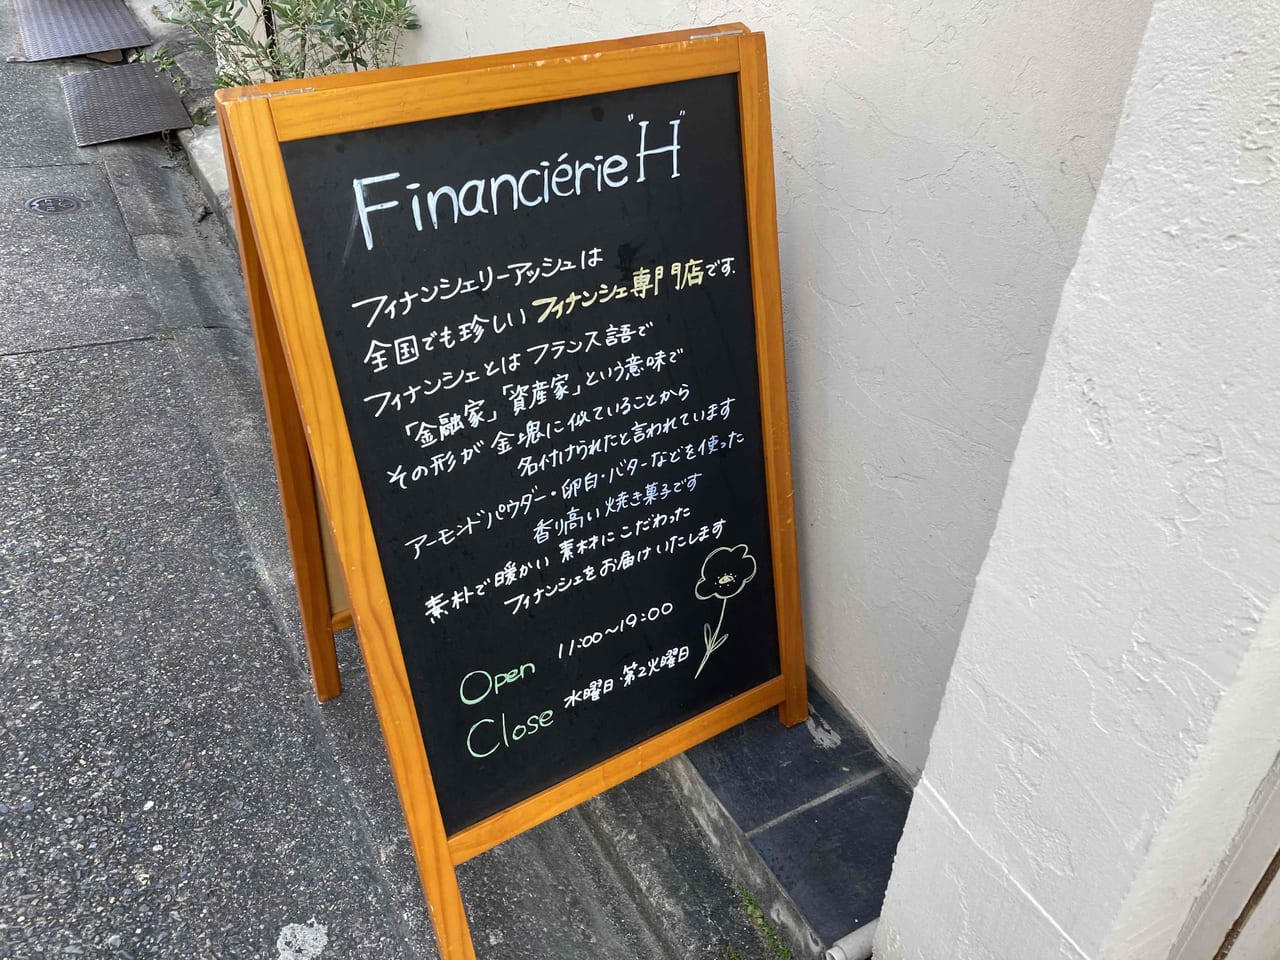 Financiérie "H"
フィナンシェリーアッシュは
全国でも珍しい フィナンシェ専門店です.
フィナンシェとは フランス語で
「金融家」「資産家」という意味で
その形が 金塊に似ていることから
名付けられたと言われています
アーモンドパウダー・卵白・バターなどを使った
香り高い焼き菓子です
素朴で暖かい 素材にこだわった
フィナンシェをお届けいたします
Open 11:00〜19:00
Close 水曜日・第2火曜日